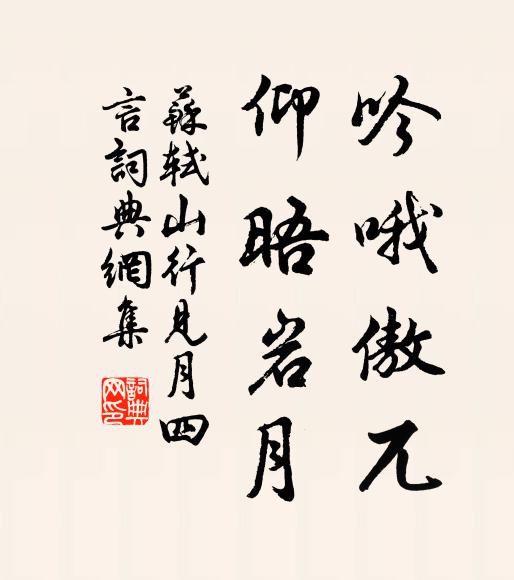 吟哦傲兀
仰晤岩月
蘇軾山行見月四
言詞典網集
詞典網印